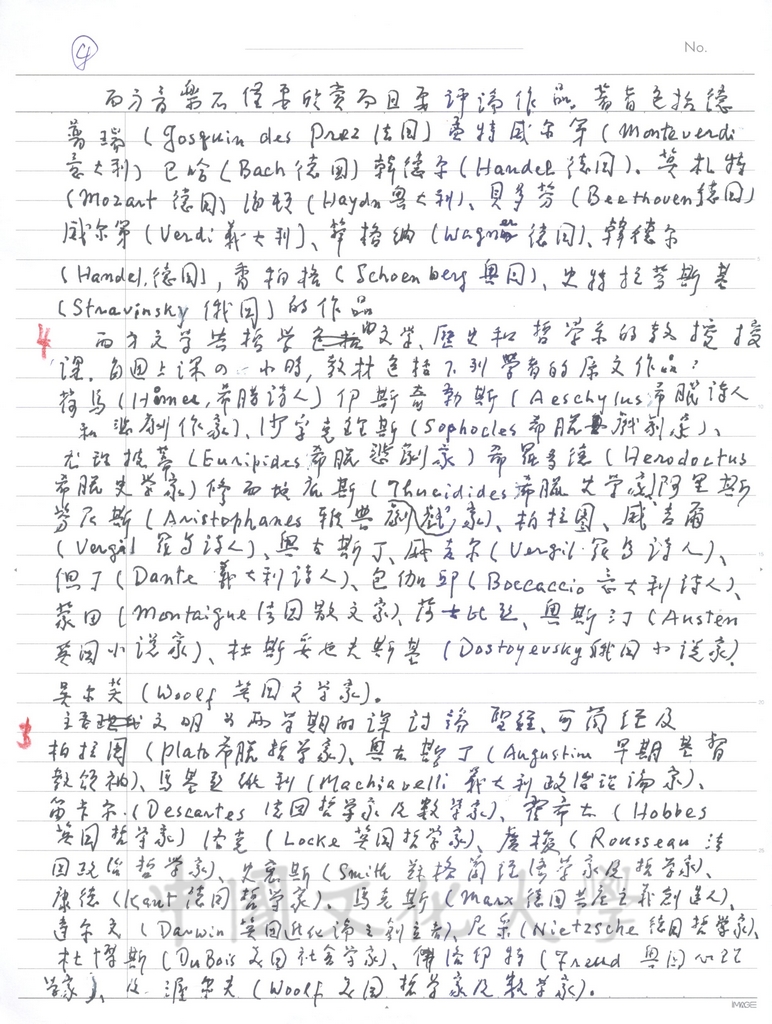 ④
No.
西方音樂不僅要欣賞而且要評論作品。著者包括德
普瑞 (Josquin des Prez 法国) 蒙特威尔第 (Monteverdi
意大利) 巴哈 (Bach 德国) 韓德尔 (Handel 德国)、莫札特
(Mozart 德国) 海頓 (Haydn 奥大利)、貝多芬 (Beethoven 德国)
威尔第 (Verdi 義大利)、華格納 (Wagner 德国)、韓德尔
(Handel, 德国), 香柏格 (Schoenberg 奥国)、史特拉芬斯基
(Stravinsky 俄国) 的作品
4 西方文学与哲学由文学、歷史和哲学系的教授授
課. 每週上課四小時, 教材包括下列學者的原文作品:
荷馬 (Homer, 希腊詩人) 伊斯奇勒斯 (Aeschylus 希腊詩人
和悲劇作家)、沙孚克理斯 (Sophocles 希腊戲剧家)、
尤里披蒂 (Euripides 希腊悲劇家) 希羅多德 (Herodoctus
希腊史学家) 修西底斯 (Thucidides 希腊史学家)、阿里斯
芬尼斯 (Aristophanes 雅典劇戲家)、柏拉图、威吉爾
(Vergil 羅马詩人)、奥古斯丁、威吉尔 (Vergil 羅马詩人)、
但丁 (Dante 義大利詩人)、包伽邱 (Boccaccio 意大利詩人)、
蒙田 (Montaigne 法国散文家)、莎士比亞、奥斯汀 (Austen
英国小说家)、杜斯妥也夫斯基 (Dostoyevsky 俄国小说家)
吴尔芙 (Woolf 英国文学家)。
3 主要文明为两学期的课 討論聖经、可蘭经及
柏拉圖 (Plato 希腊哲学家)、奥古斯丁 (Augustin 早期基督
教領袖)、馬基亚維利 (Machiavelli 義大利政治论家)、
笛卡尔 (Descartes 法国哲学家及数学家)、霍布士 (Hobbes
英国哲学家) 洛克 (Locke 英国哲学家)、盧梭 (Rousseau 法
国政治哲学家)、史密斯 (Smith 蘇格蘭经济学家及哲学家)、
康德 (Kant 德国哲学家)、馬克斯 (Marx 德国共产主義創造人)、
達尔文 (Darwin 英国進化論之創立者)、尼采 (Nietzsche 德国哲学家)、
杜博斯 (DuBois 美国社会学家)、佛洛伊特 (Freud 奥国心理
学家)、及渥尔夫 (Woolf 美国哲学家及数学家)。
中國文化大學
IMAGE